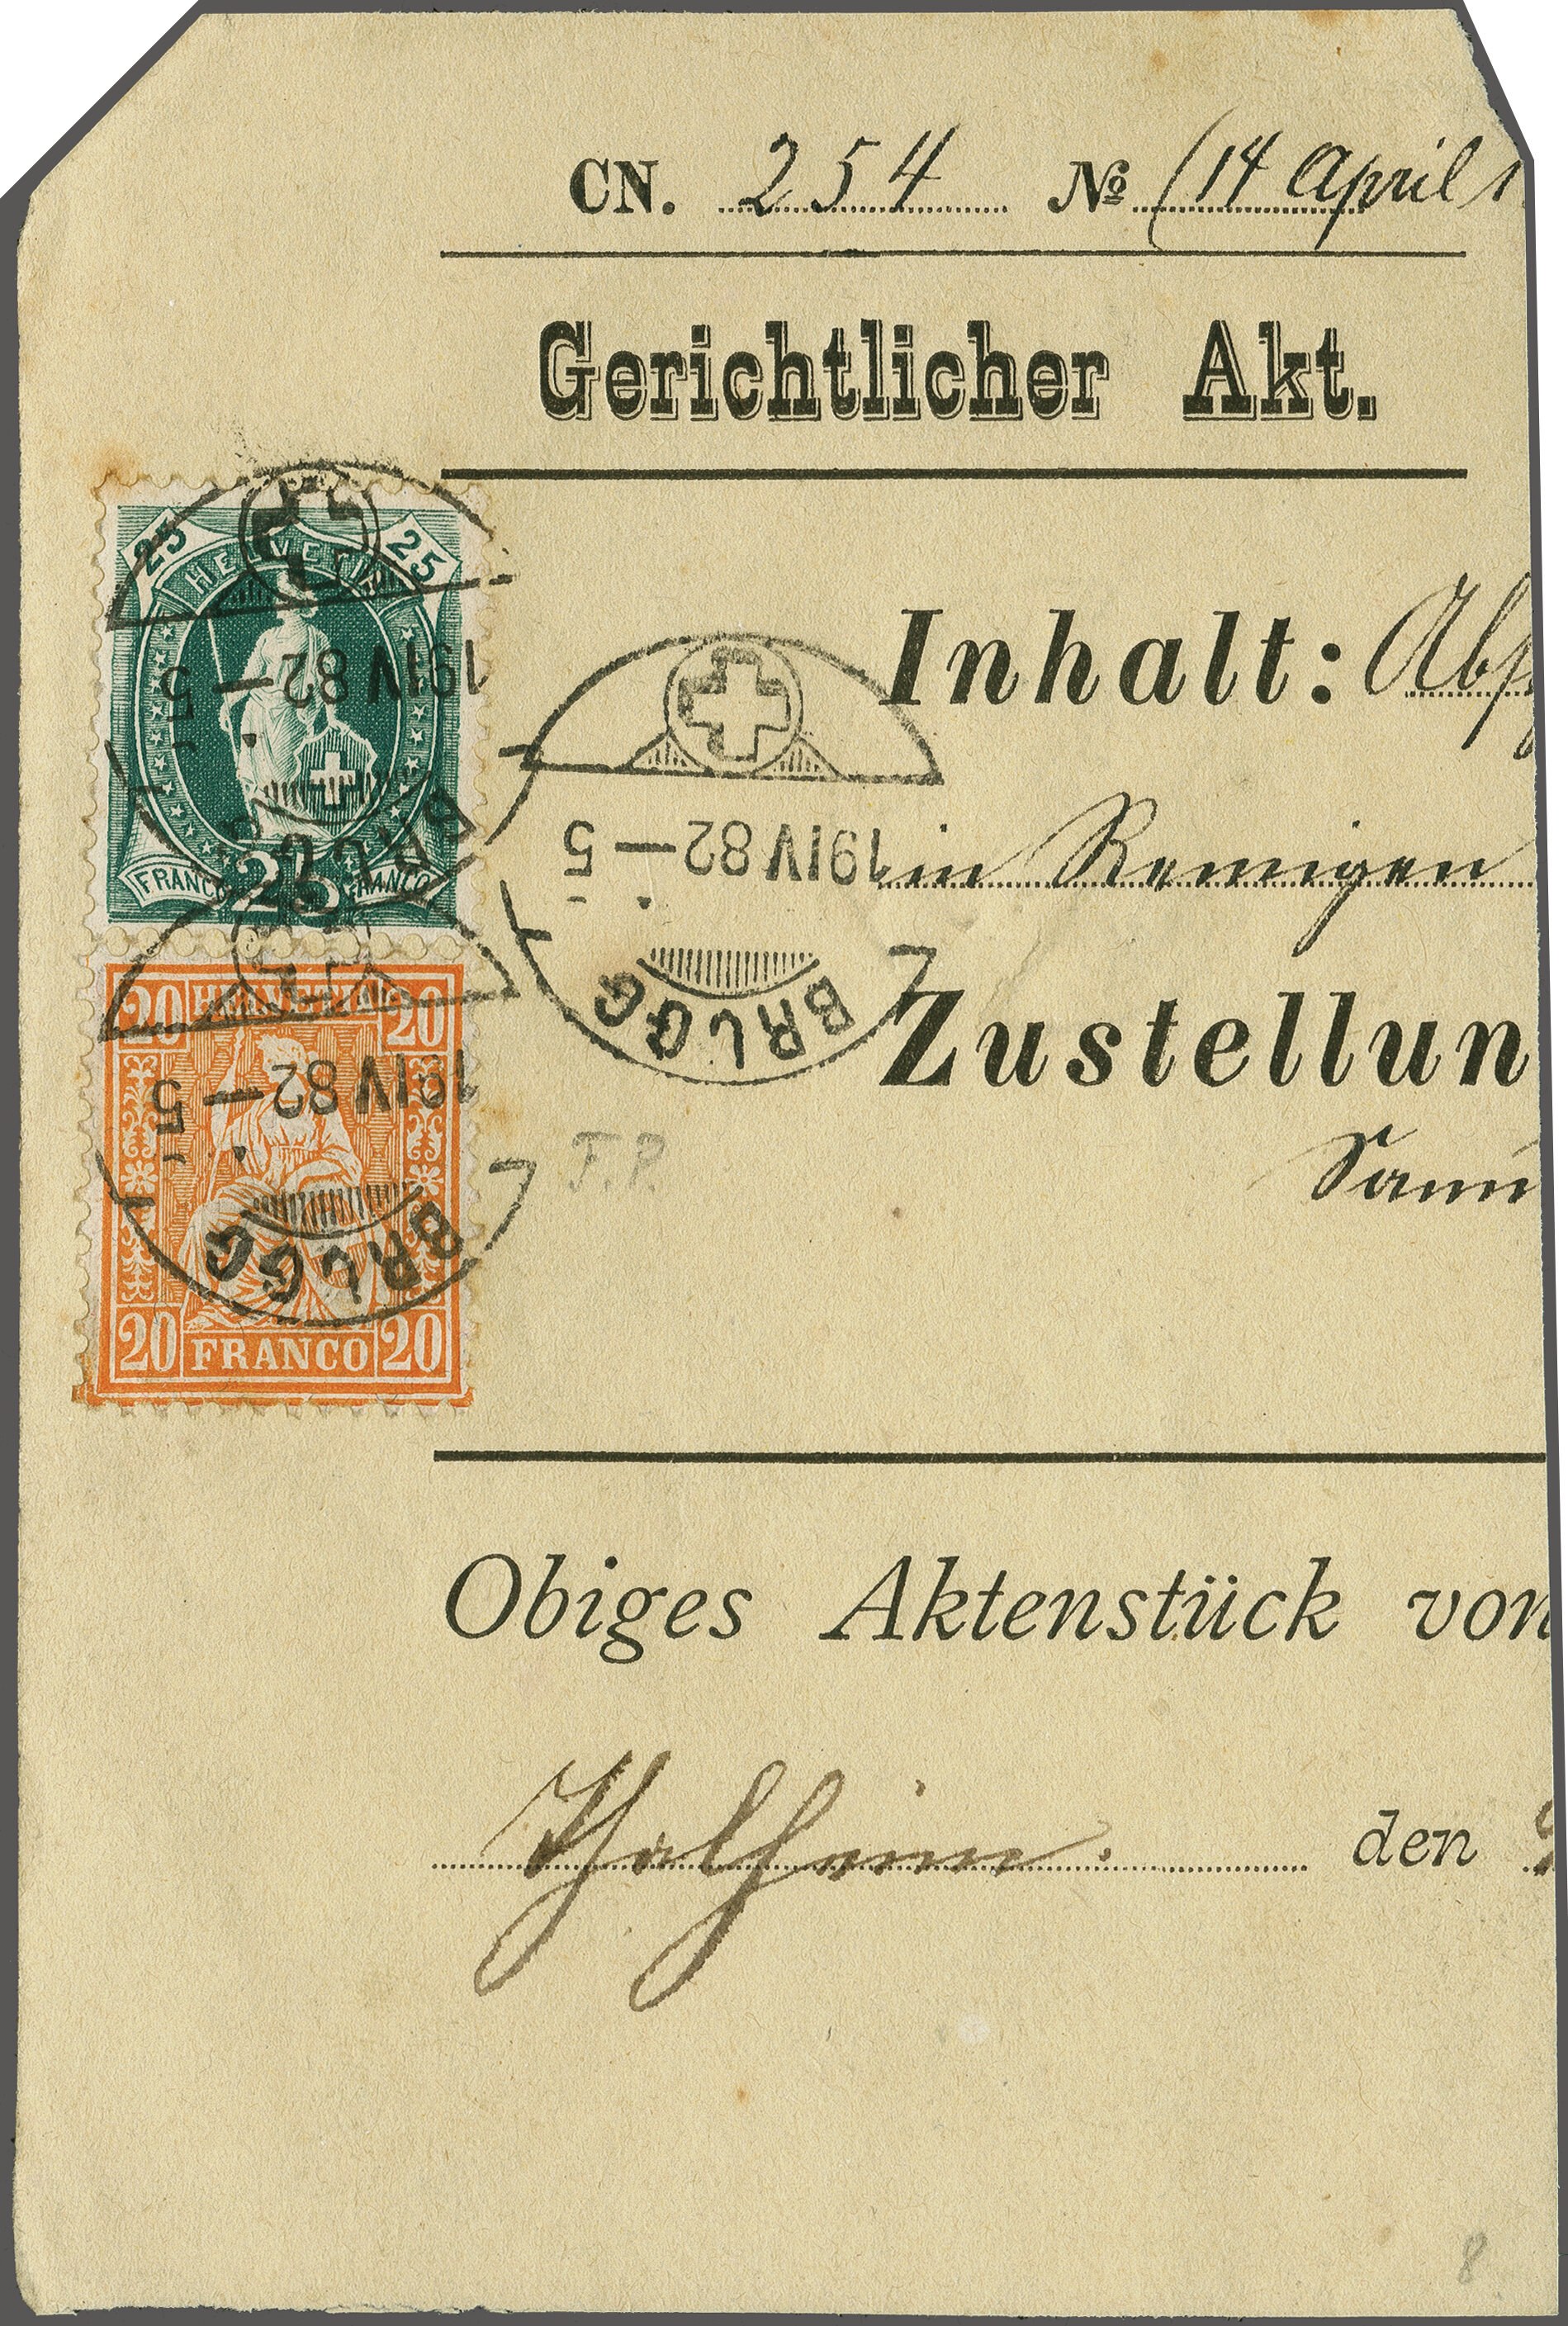 CN. 254 No (14 April 1
Gerichtlicher Akt.
25 25
HELVETIA
19 IV 82 — 5
BRUGG
FRANCO 25 FRANCO
Inhalt:
19 IV 82 — 5
in Remigen
BRUGG
Zustellun
20 HELVETIA 20
19 IV 82 — 5
BRUGG
20 FRANCO 20
F.P.
Obiges Aktenstück von
Thalheim. den
8